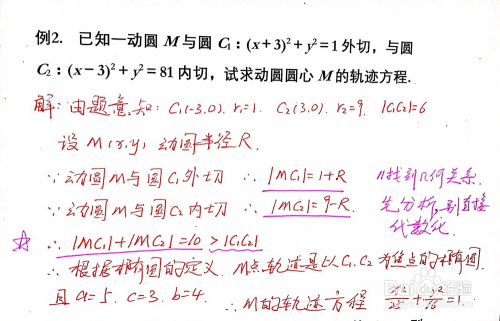 例2. 已知一动圆 M 与圆 C₁：(x+3)²+y²=1 外切，与圆
C₂：(x−3)²+y²=81 内切，试求动圆圆心 M 的轨迹方程.
解：由题意知：C₁(-3.0). r₁=1. C₂(3.0). r₂=9. |C₁C₂|=6
设 M(x,y), 动圆半径R.
∵动圆M与圆C₁外切 ∴ |MC₁|=1+R
∵动圆M与圆C₂内切 ∴ |MC₂|=9-R.
‖找到几何关系.
先分析,别直接
代数化.
☆ ∴ |MC₁|+|MC₂|=10 > |C₁C₂|
∴根据椭圆的定义. M点轨迹是以C₁.C₂ 为焦点的椭圆.
且 a=5. c=3. b=4. ∴M的轨迹方程 x²/25 + y²/16 =1